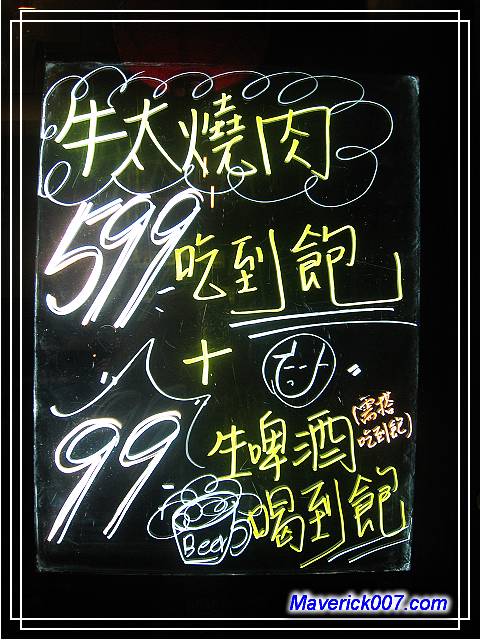 牛太燒肉
599 吃到飽
+
99 生啤酒 (需搭吃到飽)
喝到飽
Beer
Maverick007.com